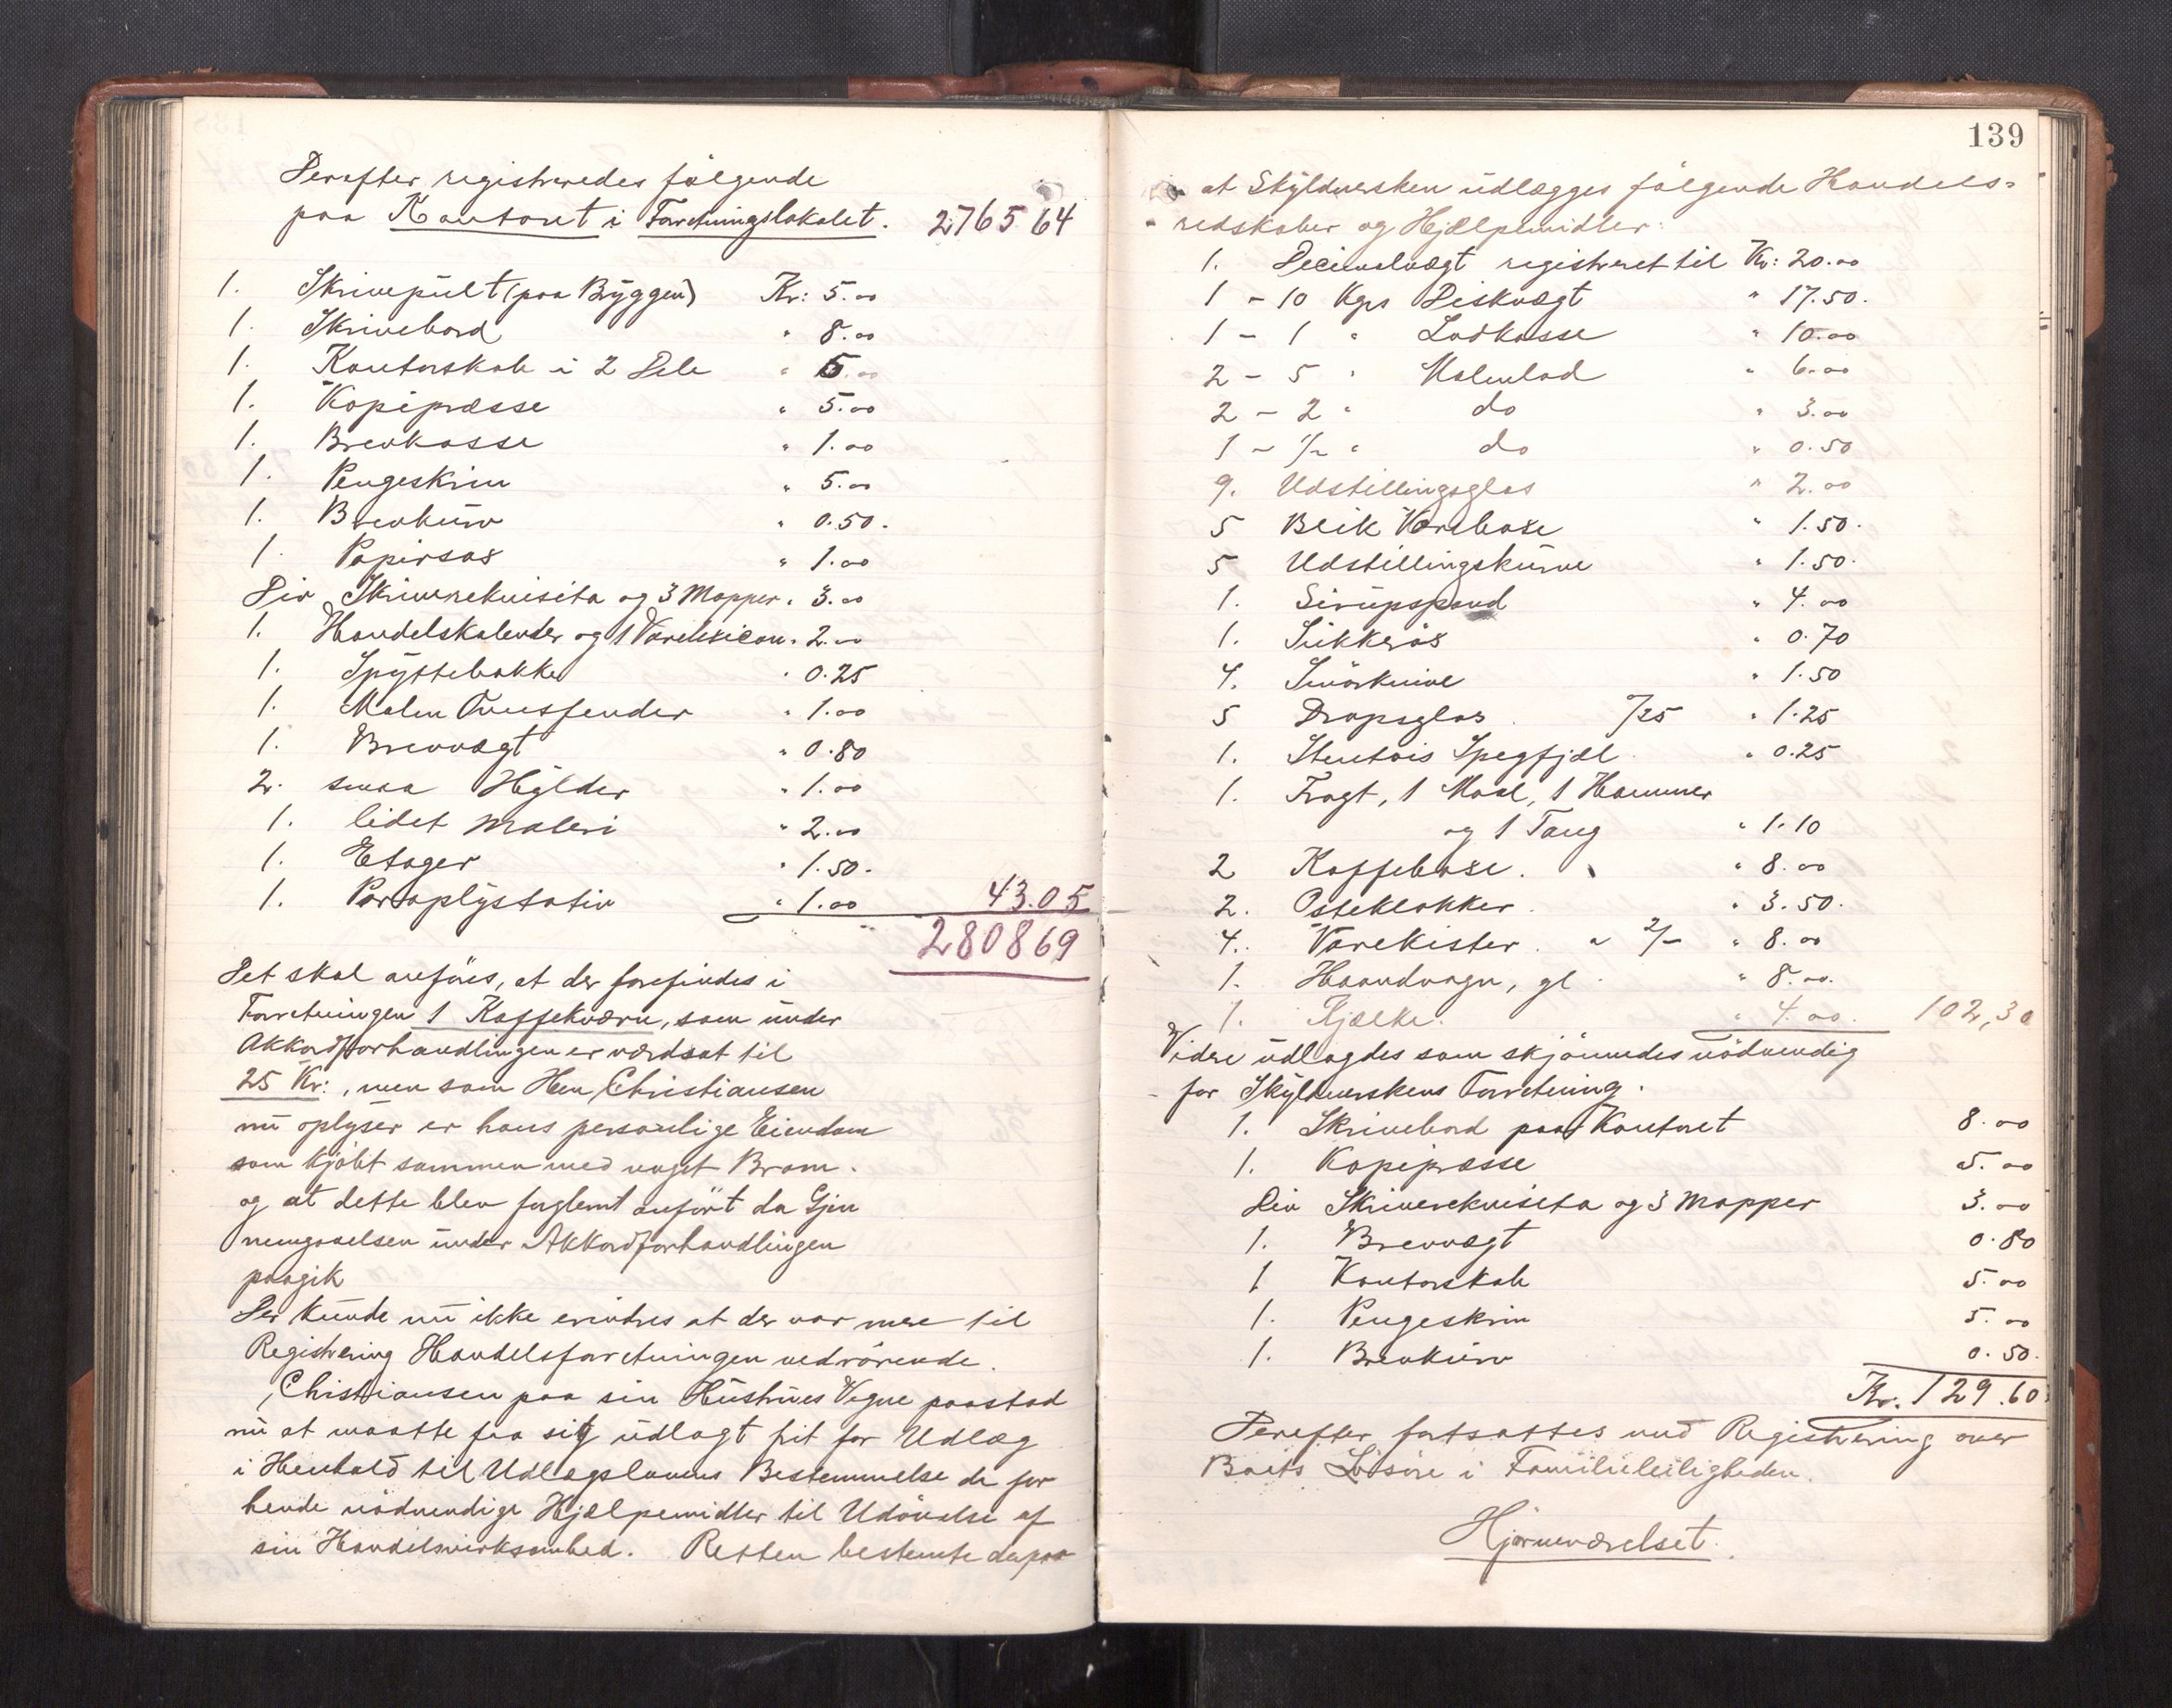 Derefter registreredes følgende
paa Kontoret i Forretningslokalet. 2765 64
1. Skrivepult (paa Bryggen) Kr: 5.00
1. Skrivebord " 8.00
1. Kontorskab i 2 Dele " 5.00
1. Kopipresse " 5.00
1. Brevkasse " 1.00
1. Pengeskrin " 5.00
1. Brevkurv " 0.50.
1. Papirsax " 1.00
Div Skriverekvisita og 3 Mapper. " 3.00
1. Handelskalender og 1 Varelexicon. 2.00
1. Spyttebakke " 0.25
1. Malm Ovnsfender " 1.00
1. Brevvægt " 0.80
2. smaa Hylder " 1.00
1. lidet maleri " 2.00
1. Etager " 1.50.
1. Paraplystativ " 1.00 43.05
2808 69
Det skal anføres, at der forefindes i
Forretningen 1 Kaffekværn, som under
Akkordforhandlingen er værdsat til
25 Kr:, men som Herr Christiansen
nu oplyser er hans personlige Eiendom
som kjøbt sammen med noget Brom.
og at dette blev forglemt anført da Gjen
nemgaaelsen under Akkordforhandlingen
paagik
Der kunde nu ikke erindres at der var mere til
Registrering Handelsforretningen vedrørende.
Christiansen paa sin Hustrues Vegne paastod
nu at maatte faa sig udlagt frit for Udlæg
i Henhold til Udlægslovens Bestemmelse de for
hende nødvendige Hjælpemidler til Udøvelse af
sin Handelsvirksomhed. Retten bestemte derpaa
139
at Skyldnersken udlægges følgende Handels-
redskaber og Hjælpemidler:
1. Decimalvægt registreret til Kr: 20.00
1 - 10 Kgrs Diskvægt " 17.50.
1 - 1 " Lodkasse " 10.00
2 - 5 " Malmlod " 6.00
2 - 2 " do " 3.00
1 - 1/2 " do " 0.50
9. Udstillingsglas " 2.00
5 Blik Vareboxe " 1.50.
5 Udstillingskurve " 1.50.
1. Sirupspand " 4.00
1. Sukkerøs " 0.70
4. Smørknive " 1.50
5 Dropsglas /25 " 1.25
1. Spegfjæl " 0.25
1. Tragt, 1 Maal, 1 Hammer
og 1 Tang " 1.10
2 Kaffeboxe. " 8.00
2. Osteklokker " 3.50.
4. Varekister. a 2/- " 8.00
1. Haandvogn, gl. " 8.00.
1. Kjælke. " 4.00. 102,30
Videre udlagdes som skjønnedes nødvendig
for Skyldnerskens Forretning.
1. Skrivebord paa Kontoret 8.00
1. Kopipresse 5.00
Div Skriverekvisita og 3 Mapper 3.00
1. Brevvægt 0.80
1 Kontorskab 5.00
1. Pengeskrin 5.00
1. Brevkurv 0.50.
Kr. 129.60
Derefter fortsattes med Registrering over
Boets Løsøre i Familieleiligheden.
Hjørneværelset.